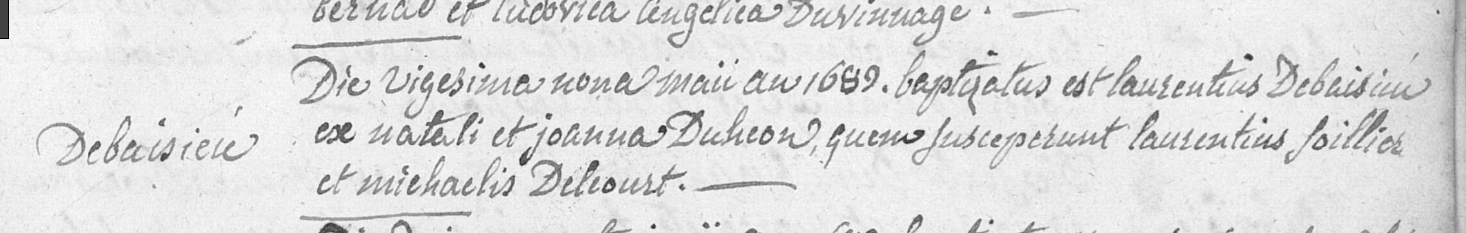 bernard et ludovica angelica Duvinnage.
Die vigesima nona maii an 1689. baptizatus est laurentius Debaisieu
Debaisieu
ex natali et joanna Duheon, quem susceperunt laurentius foillier
et michaelis Delcourt.